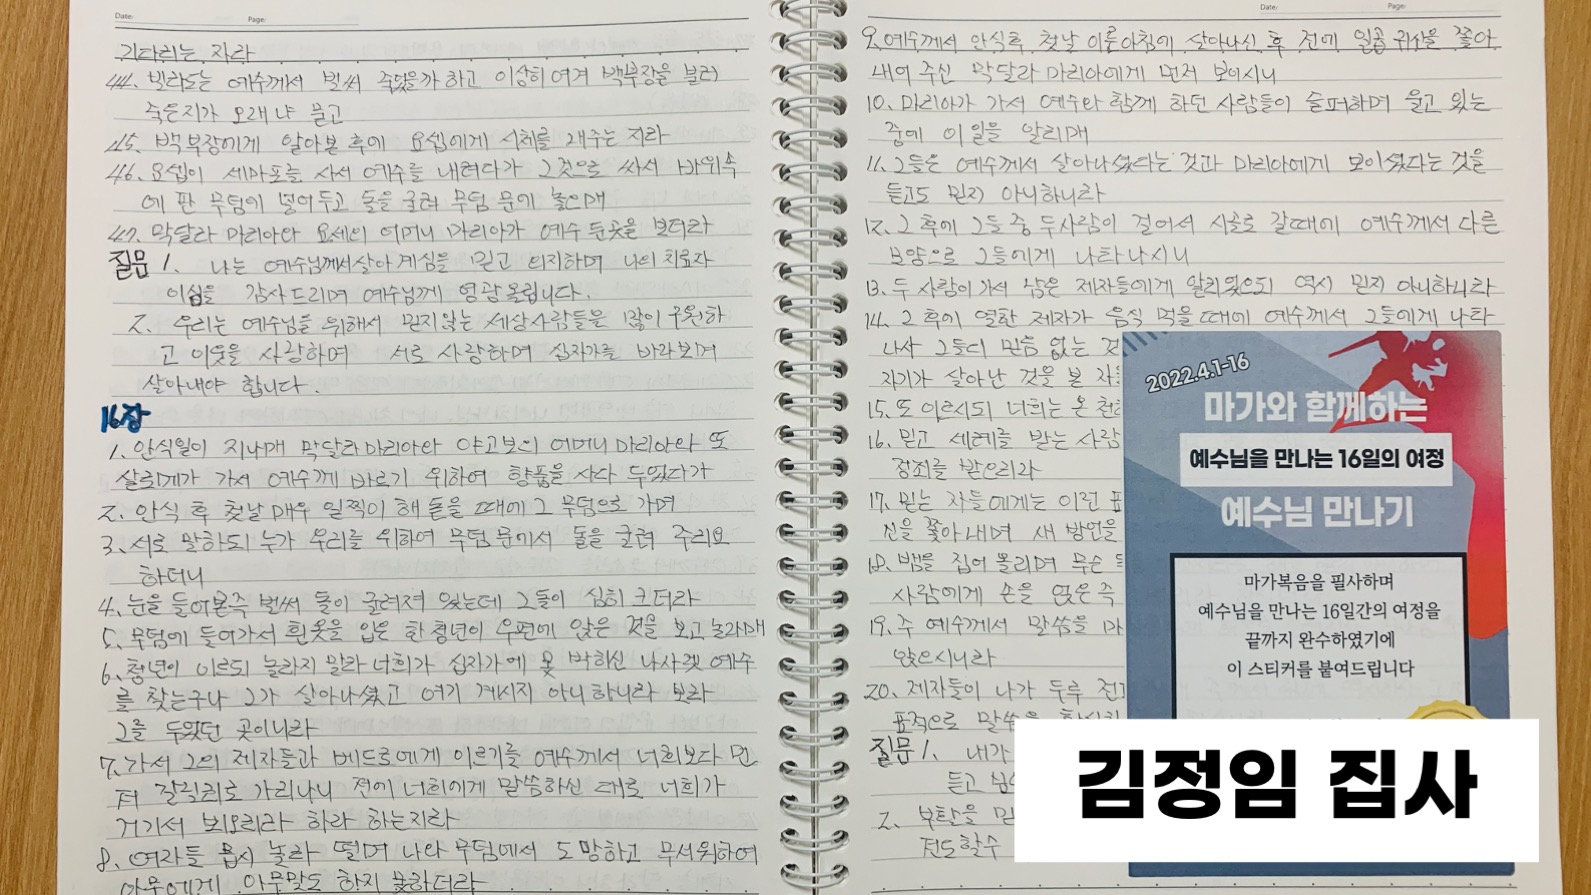 Date: Page:
기다리는 자라
44. 빌라도는 예수께서 벌써 죽었을까 하고 이상히 여겨 백부장을 불러
죽은지가 오래냐 묻고
45. 백부장에게 알아본 후에 요셉에게 시체를 내주는 지라
46. 요셉이 세마포를 사서 예수를 내려다가 그것으로 싸서 바위속
에 판 무덤에 넣어두고 돌을 굴려 무덤 문에 놓으매
47. 막달라 마리아와 요세의 어머니 마리아가 예수 둔곳을 보더라
질문 1. 나는 예수님께서살아 계심을 믿고 의지하며 나의 치료자
이심을 감사드리며 예수님께 영광 올립니다.
2. 우리는 예수님을 위해서 믿지않는 세상사람들을 많이 구원하
고 이웃을 사랑하며 서로 사랑하며 십자가를 바라보며
살아내야 합니다.
16장
1. 안식일이 지나매 막달라마리아와 야고보의 어머니마리아와 또
살로메가 가서 예수께 바르기 위하여 향품을 사다 두었다가
2. 안식 후 첫날 매우 일찍이 해 돋을 때에 그 무덤으로 가며
3. 서로 말하되 누가 우리를 위하여 무덤 문에서 돌을 굴려 주리요
하더니
4. 눈을 들어본즉 벌써 돌이 굴려져 있는데 그돌이 심히 크더라
5. 무덤에 들어가서 흰옷을 입은 한 청년이 우편에 앉은 것을 보고 놀라매
6. 청년이 이르되 놀라지 말라 너희가 십자가에 못 박히신 나사렛 예수
를 찾는구나 그가 살아나셨고 여기 계시지 아니하니라 보라
그를 두었던 곳이니라
7. 가서 그의 제자들과 베드로에게 이르기를 예수께서 너희보다 먼
저 갈릴리로 가리나니 전에 너희에게 말씀하신 대로 너희가
거기서 뵈오리라 하라 하는지라
8. 여자들 몹시 놀라 떨며 나와 무덤에서 도망하고 무서워하여
아무에게 아무말도 하지 못하더라
Date: Page:
9. 예수께서 안식후 첫날 이른아침에 살아나신 후 전에 일곱 귀신을 쫓아
내어 주신 막달라 마리아에게 먼저 보이시니
10. 마리아가 가서 예수와 함께 하던 사람들이 슬퍼하며 울고 있는
중에 이 일을 알리매
11. 그들은 예수께서 살아나셨다는 것과 마리아에게 보이셨다는 것을
듣고도 믿지 아니하니라
12. 그 후에 그들 중 두사람이 걸어서 시골로 갈때에 예수께서 다른
모양으로 그들에게 나타나시니
13. 두 사람이가서 남은 제자들에게 알리었으되 역시 믿지 아니하니라
14. 그 후에 열한 제자가 음식 먹을 때에 예수께서 그들에게 나타
나사 그들의 믿음 없는 것
자기가 살아난 것을 본 자
15. 또 이르시되 너희는 온 천
16. 믿고 세례를 받는 사람
정죄를 받으리라
17. 믿는 자들에게는 이런 표
신을 쫓아내며 새 방언을
18. 뱀을 집어 올리며 무슨
사람에게 손을 얹은즉
19. 주 예수께서 말씀을 마
앉으시니라
20. 제자들이 나가 두루 전
표적으로 말씀을
질문 1. 내가
듣고
2. 부탁을 믿
전도할수
2022.4.1-16
마가와 함께하는
예수님을 만나는 16일의 여정
예수님 만나기
마가복음을 필사하며
예수님을 만나는 16일간의 여정을
끝까지 완수하였기에
이 스티커를 붙여드립니다
김정임 집사